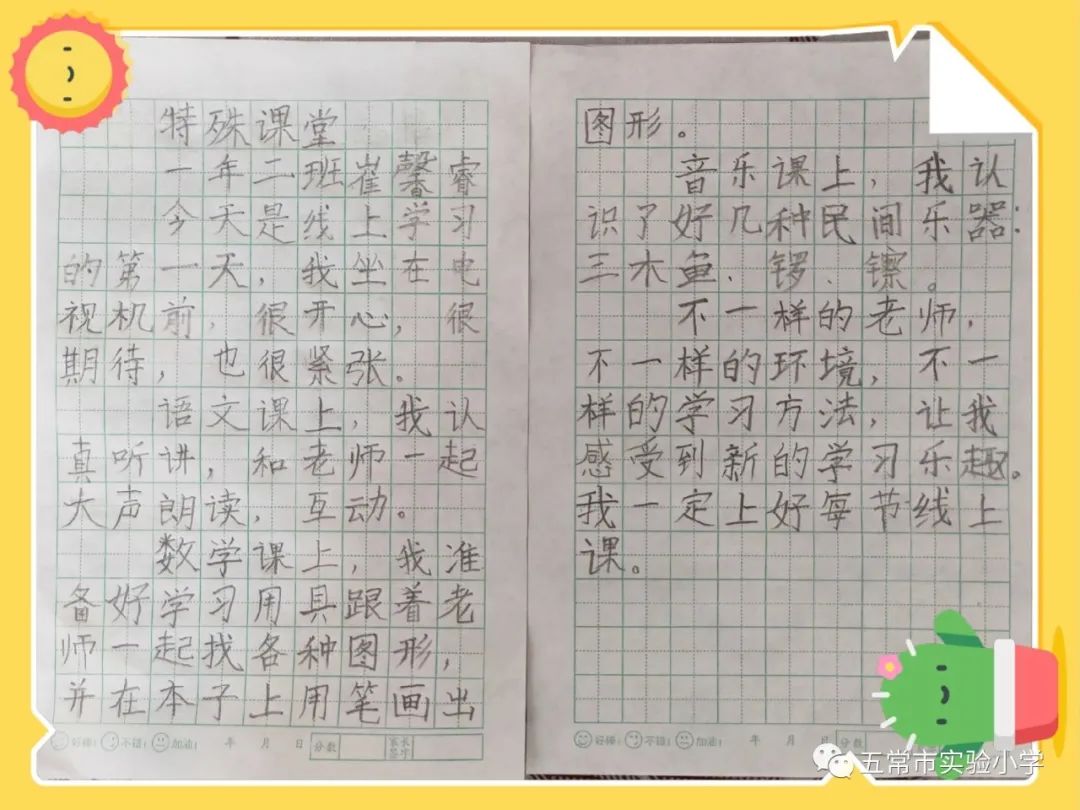 特殊课堂
一年二班崔馨睿
今天是线上学习
的第一天，我坐在电
视机前，很开心，很
期待，也很紧张。
语文课上，我认
真听讲，和老师一起
大声朗读，互动。
数学课上，我准
备好学习用具跟着老
师一起找各种图形，
并在本子上用笔画出
好棒！不错！加油！ 年 月 日 分数 家长签字
图形。
音乐课上，我认
识了好几种民间乐器：
三木鱼、锣、镲。
不一样的老师，
不一样的环境，不一
样的学习方法，让我
感受到新的学习乐趣。
我一定上好每节线上
课。
好棒！不错！加油！ 年 月 日 分数
五常市实验小学